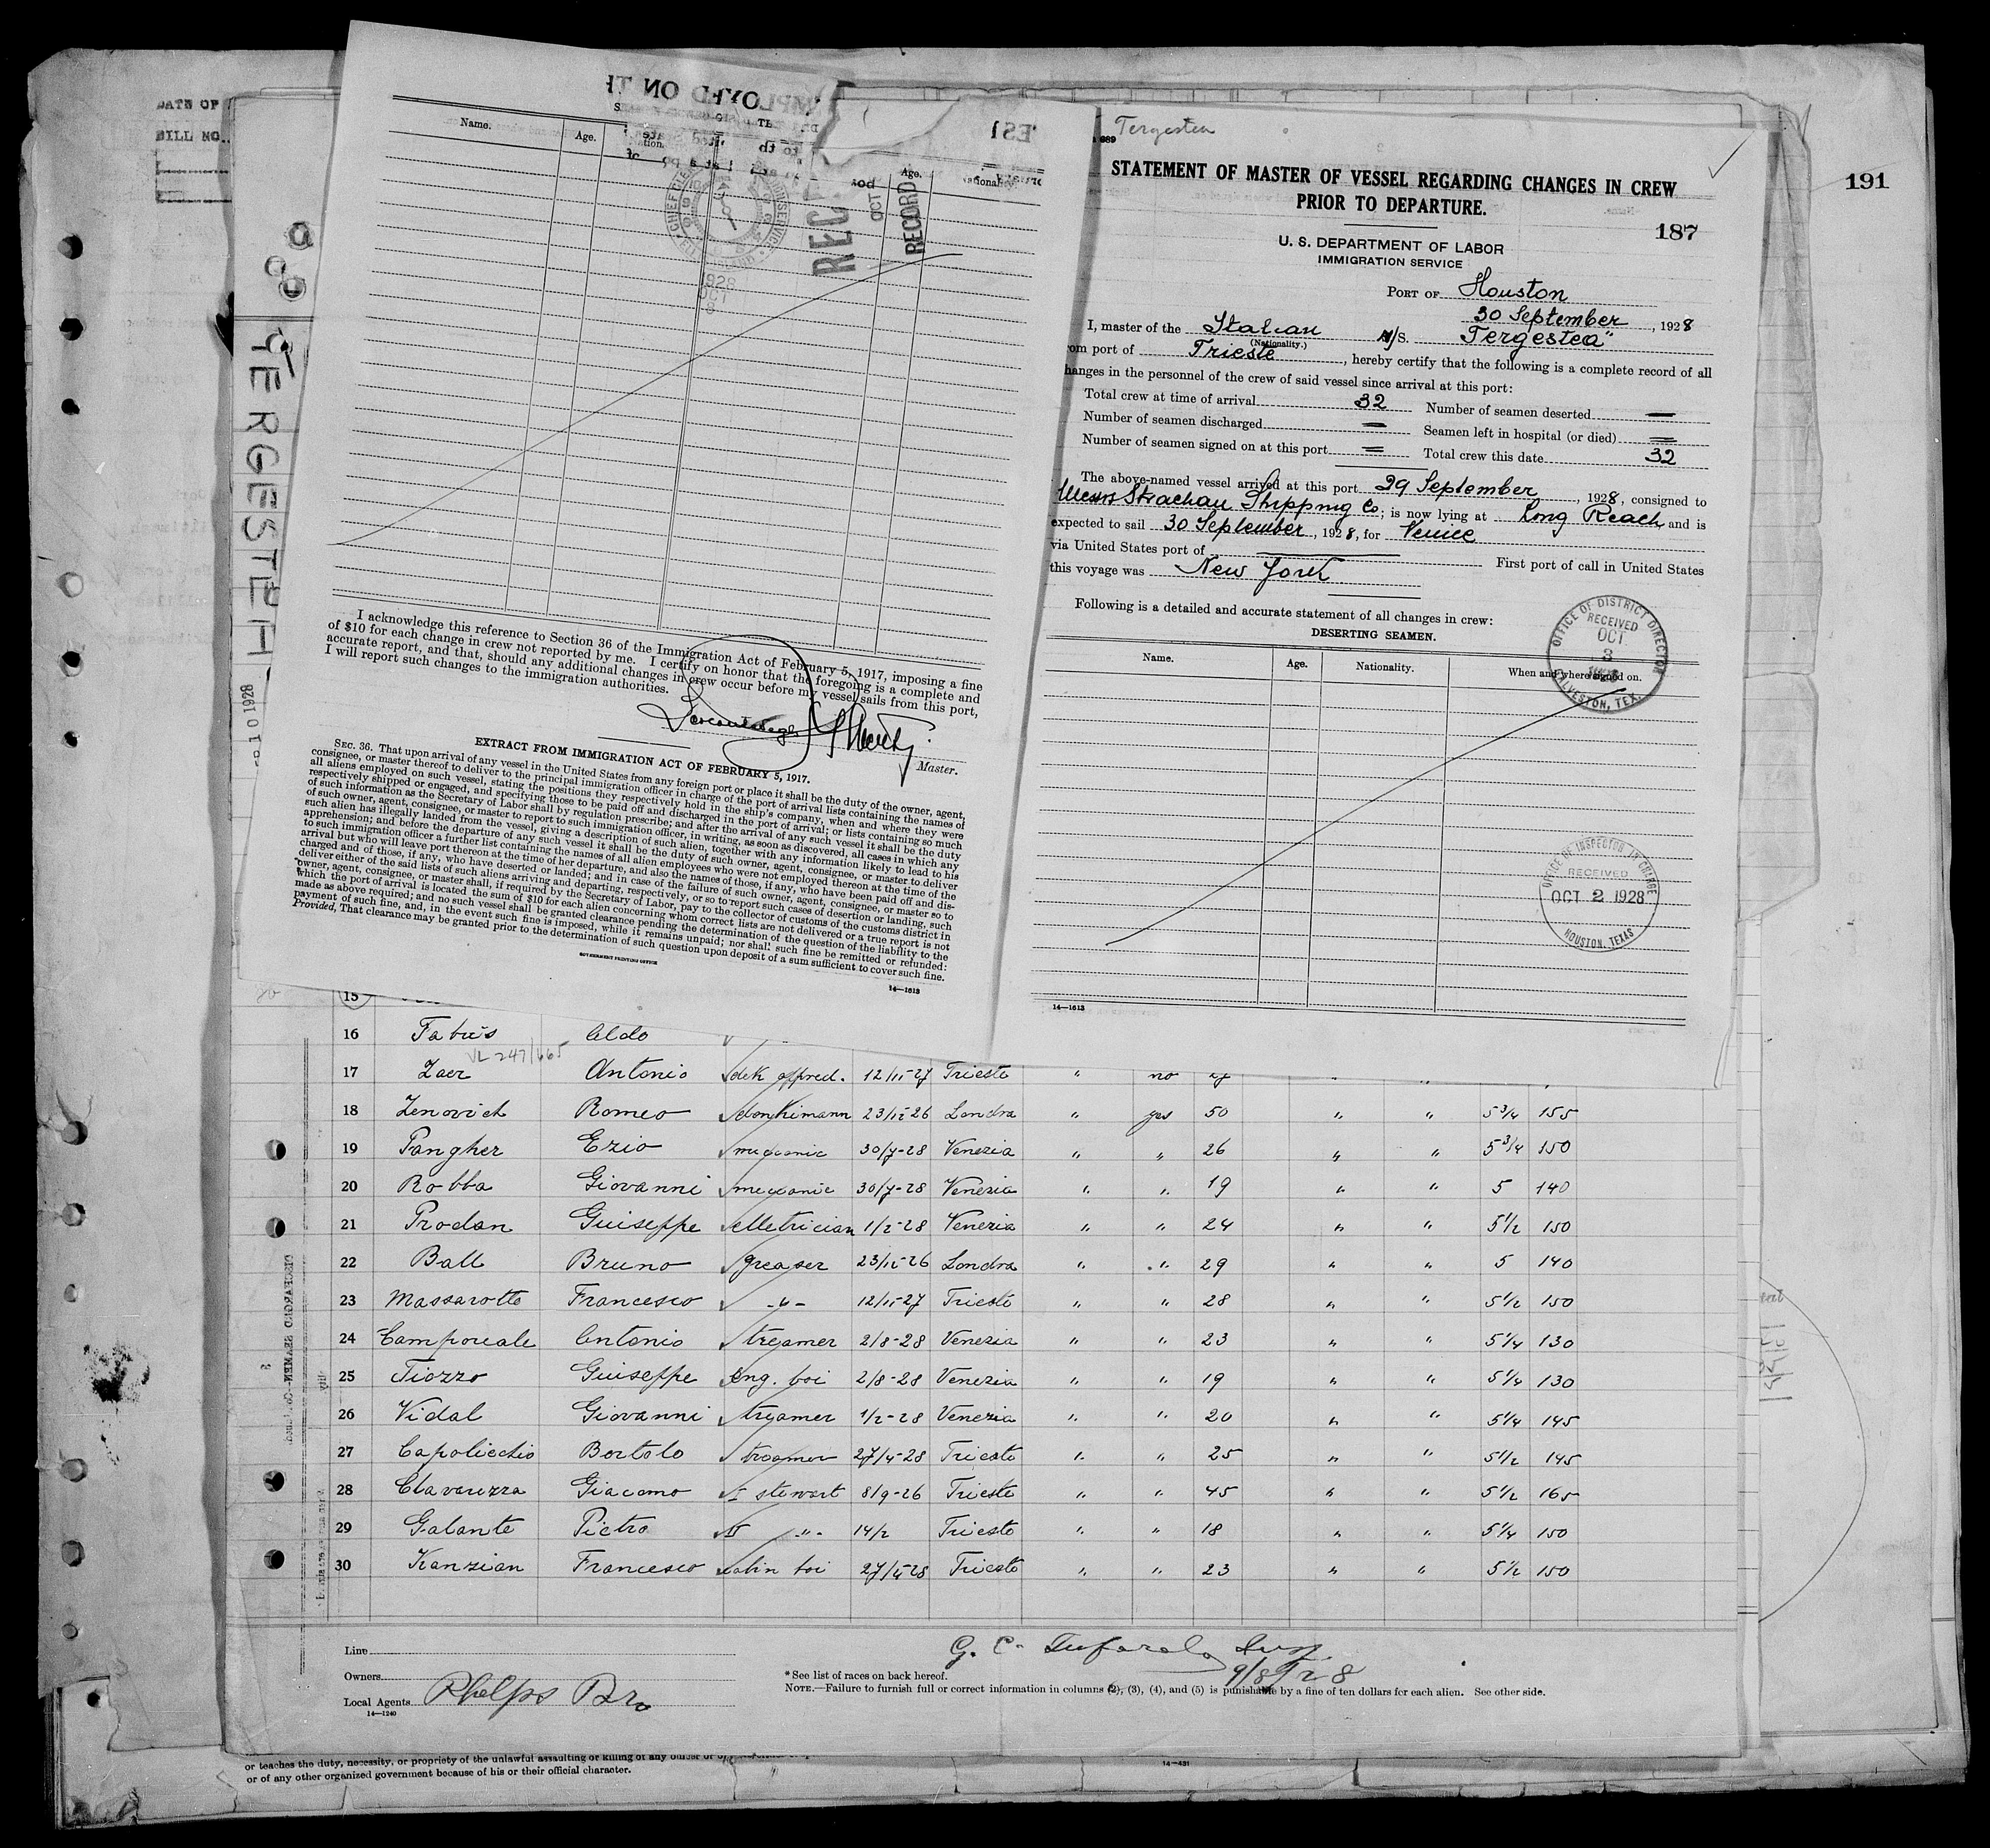 DATE OF
BILL NO.
191
TERGESTEA
Name.
Age.
Nation.
Age.
National
RECORD
OCT
1928
OCT
8
I acknowledge this reference to Section 36 of the Immigration Act of February 5, 1917, imposing a fine
of $10 for each change in crew not reported by me. I certify on honor that the foregoing is a complete and
accurate report, and that, should any additional changes in crew occur before my vessel sails from this port,
I will report such changes to the immigration authorities.
Master.
EXTRACT FROM IMMIGRATION ACT OF FEBRUARY 5, 1917.
SEC. 36. That upon arrival of any vessel in the United States from any foreign port or place it shall be the duty of the owner, agent,
consignee, or master thereof to deliver to the principal immigration officer in charge of the port of arrival lists containing the names of
all aliens employed on such vessel, stating the positions they respectively hold in the ship's company, when and where they were
respectively shipped or engaged, and specifying those to be paid off and discharged in the port of arrival; or lists containing so much
of such information as the Secretary of Labor shall by regulation prescribe; and after the arrival of any such vessel it shall be the duty
of such owner, agent, consignee, or master to report to such immigration officer, in writing, as soon as discovered, all cases in which any
such alien has illegally landed from the vessel, giving a description of such alien, together with any information likely to lead to his
apprehension; and before the departure of any such vessel it shall be the duty of such owner, agent, consignee, or master to deliver
to such immigration officer a further list containing the names of all alien employees who were not employed thereon at the time of the
arrival but who will leave port thereon at the time of her departure, and also the names of those, if any, who have been paid off and dis-
charged and of those, if any, who have deserted or landed; and in case of the failure of such owner, agent, consignee, or master so to
deliver either of the said lists of such aliens arriving and departing, respectively, or so to report such cases of desertion or landing, such
owner, agent, consignee, or master shall, if required by the Secretary of Labor, pay to the collector of customs of the customs district in
which the port of arrival is located the sum of $10 for each alien concerning whom correct lists are not delivered or a true report is not
made as above required; and no such vessel shall be granted clearance pending the determination of the question of the liability to the
payment of such fine, and, in the event such fine is imposed, while it remains unpaid; nor shall such fine be remitted or refunded:
Provided, That clearance may be granted prior to the determination of such question upon deposit of a sum sufficient to cover such fine.
GOVERNMENT PRINTING OFFICE
14—1613
689
Tergestea
STATEMENT OF MASTER OF VESSEL REGARDING CHANGES IN CREW
PRIOR TO DEPARTURE.
187
U. S. DEPARTMENT OF LABOR
IMMIGRATION SERVICE
PORT OF Houston
30 September, 1928
I, master of the Italian M/S. Tergestea"
(Nationality.)
om port of Trieste, hereby certify that the following is a complete record of all
hanges in the personnel of the crew of said vessel since arrival at this port:
Total crew at time of arrival 32 Number of seamen deserted —
Number of seamen discharged — Seamen left in hospital (or died) —
Number of seamen signed on at this port — Total crew this date 32
The above-named vessel arrived at this port 29 September, 1928, consigned to
Messrs Strachan Shipping Co; is now lying at Long Reach and is
expected to sail 30 September, 1928, for Venice
via United States port of — First port of call in United States
this voyage was New York
Following is a detailed and accurate statement of all changes in crew:
DESERTING SEAMEN.
Name. Age. Nationality. When and where signed on.
OFFICE OF DISTRICT DIRECTOR
RECEIVED
OCT
8
1928
GALVESTON, TEX.
OFFICE OF INSPECTOR IN CHARGE
RECEIVED
OCT 2 1928
HOUSTON, TEXAS
14—1613
15
16 Fabris Aldo
VL 247/665
17 Zaer Antonio dek apprend. 12/11-27 Trieste " no 27
18 Zenovich Romeo donkimann 23/12-26 Londra " yes 50 " " 5 3/4 155
19 Pangher Ezio meccanic 30/7-28 Venezia " " 26 " " 5 3/4 150
20 Robba Giovanni meccanic 30/7-28 Venezia " " 19 " " 5 140
21 Prodan Guiseppe elletrician 1/2-28 Venezia " " 24 " " 5 1/2 150
22 Ball Bruno greaser 23/12-26 Londra " " 29 " " 5 140
23 Massarotto Francesco -"- 12/11-27 Trieste " " 28 " " 5 1/2 150
24 Camporeale Antonio streamer 2/8-28 Venezia " " 23 " " 5 1/4 130
25 Tiozzo Guiseppe eng. boi 2/8-28 Venezia " " 19 " " 5 1/4 130
26 Vidal Giovanni streamer 1/2-28 Venezia " " 20 " " 5 1/4 145
27 Capolicchio Bortolo streamer 27/4-28 Trieste " " 25 " " 5 1/2 145
28 Clavarezza Giacomo I stewart 8/9-26 Trieste " " 45 " " 5 1/2 165
29 Galante Pietro II -"- 14/2 Trieste " " 18 " " 5 1/4 150
30 Kanzian Francesco cabin boi 27/4-28 Trieste " " 23 " " 5 1/2 150
Line
Owners
Local Agents Phelps Bro
14—1240
* See list of races on back hereof.
NOTE.—Failure to furnish full or correct information in columns (2), (3), (4), and (5) is punishable by a fine of ten dollars for each alien. See other side.
or teaches the duty, necessity, or propriety of the unlawful assaulting or killing of any officer or
or of any other organized government because of his or their official character.
14—431